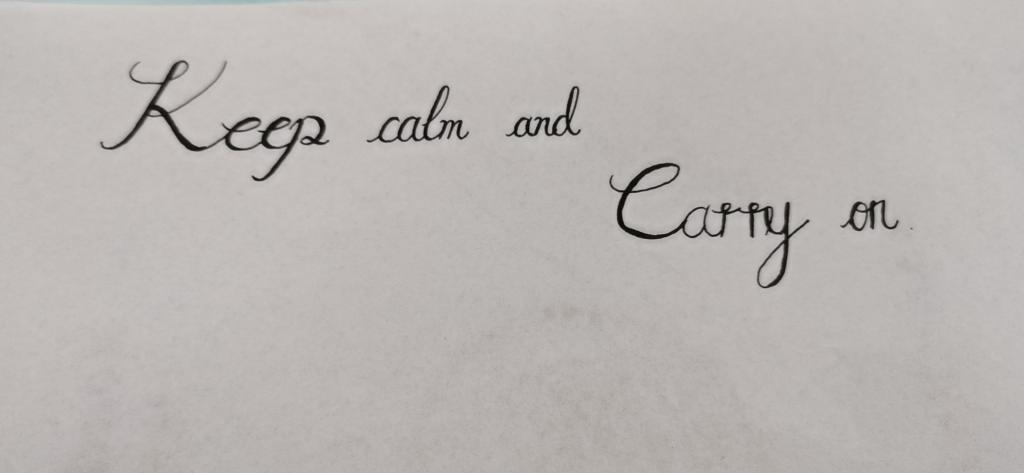 Keep calm and
Carry on.